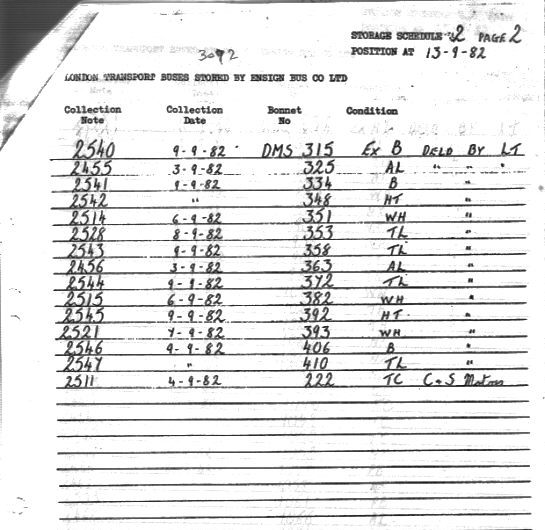 STORAGE SCHEDULE 2 PAGE 2
POSITION AT 13-9-82
LONDON TRANSPORT BUSES STORED BY ENSIGN BUS CO LTD
Collection Note Collection Date Bonnet No Condition
2540 9-9-82 DMS 315 Ex B DELD BY LT
2455 3-9-82 325 AL " " "
2541 9-9-82 334 B "
2542 " 348 HT "
2514 6-9-82 351 WH "
2528 8-9-82 353 TL "
2543 9-9-82 358 TL "
2456 3-9-82 363 AL "
2544 9-9-82 372 TL "
2515 6-9-82 382 WH "
2545 9-9-82 392 HT "
2521 7-9-82 393 WH "
2546 9-9-82 406 B "
2547 " 410 TL "
2511 4-9-82 222 TC C & S Motors